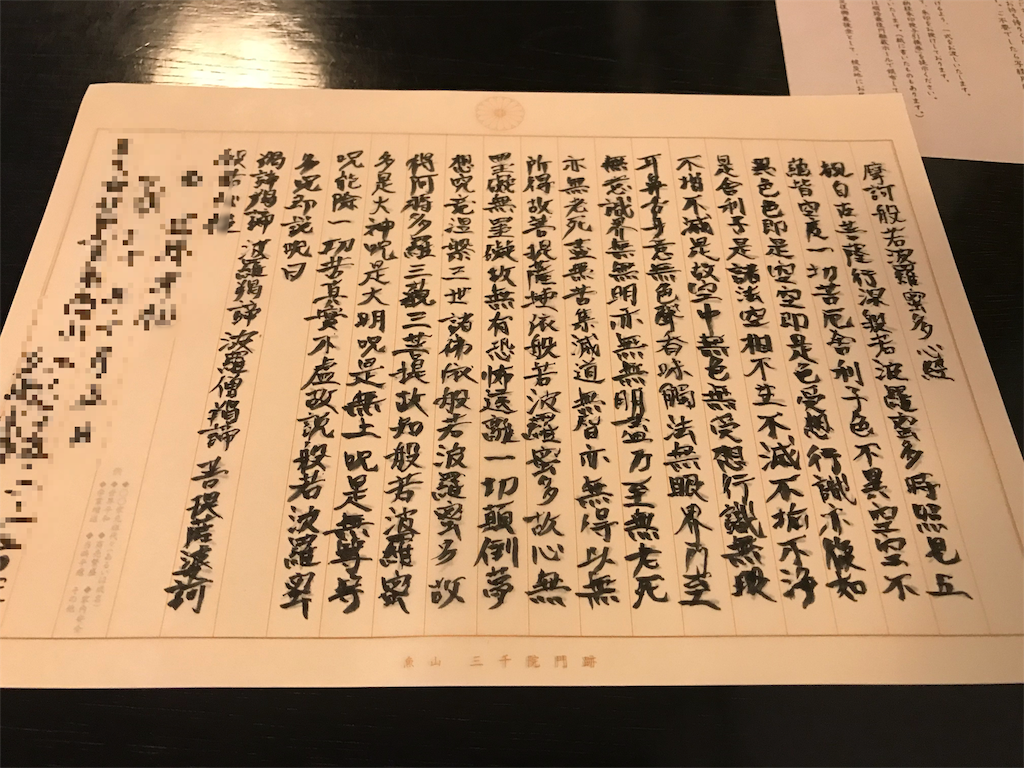 摩訶般若波羅蜜多心經
観自在菩薩行深般若波羅蜜多時照見五
蘊皆空度一切苦厄舎利子色不異空空不
異色色即是空空即是色受想行識亦復如
是舎利子是諸法空相不生不滅不垢不浄
不増不減是故空中無色無受想行識無眼
耳鼻舌身意無色聲香味觸法無眼界乃至
無意識界無無明亦無無明盡乃至無老死
亦無老死盡無苦集滅道無智亦無得以無
所得故菩提薩埵依般若波羅蜜多故心無
罣礙無罣礙故無有恐怖遠離一切顛倒夢
想究竟涅槃三世諸佛依般若波羅蜜多故
得阿耨多羅三藐三菩提故知般若波羅蜜
多是大神呪是大明呪是無上呪是無等等
呪能除一切苦真實不虚故説般若波羅蜜
多呪即説呪曰
羯諦羯諦 波羅羯諦 波羅僧羯諦 菩提薩婆訶
般若心經
魚山 三千院門跡